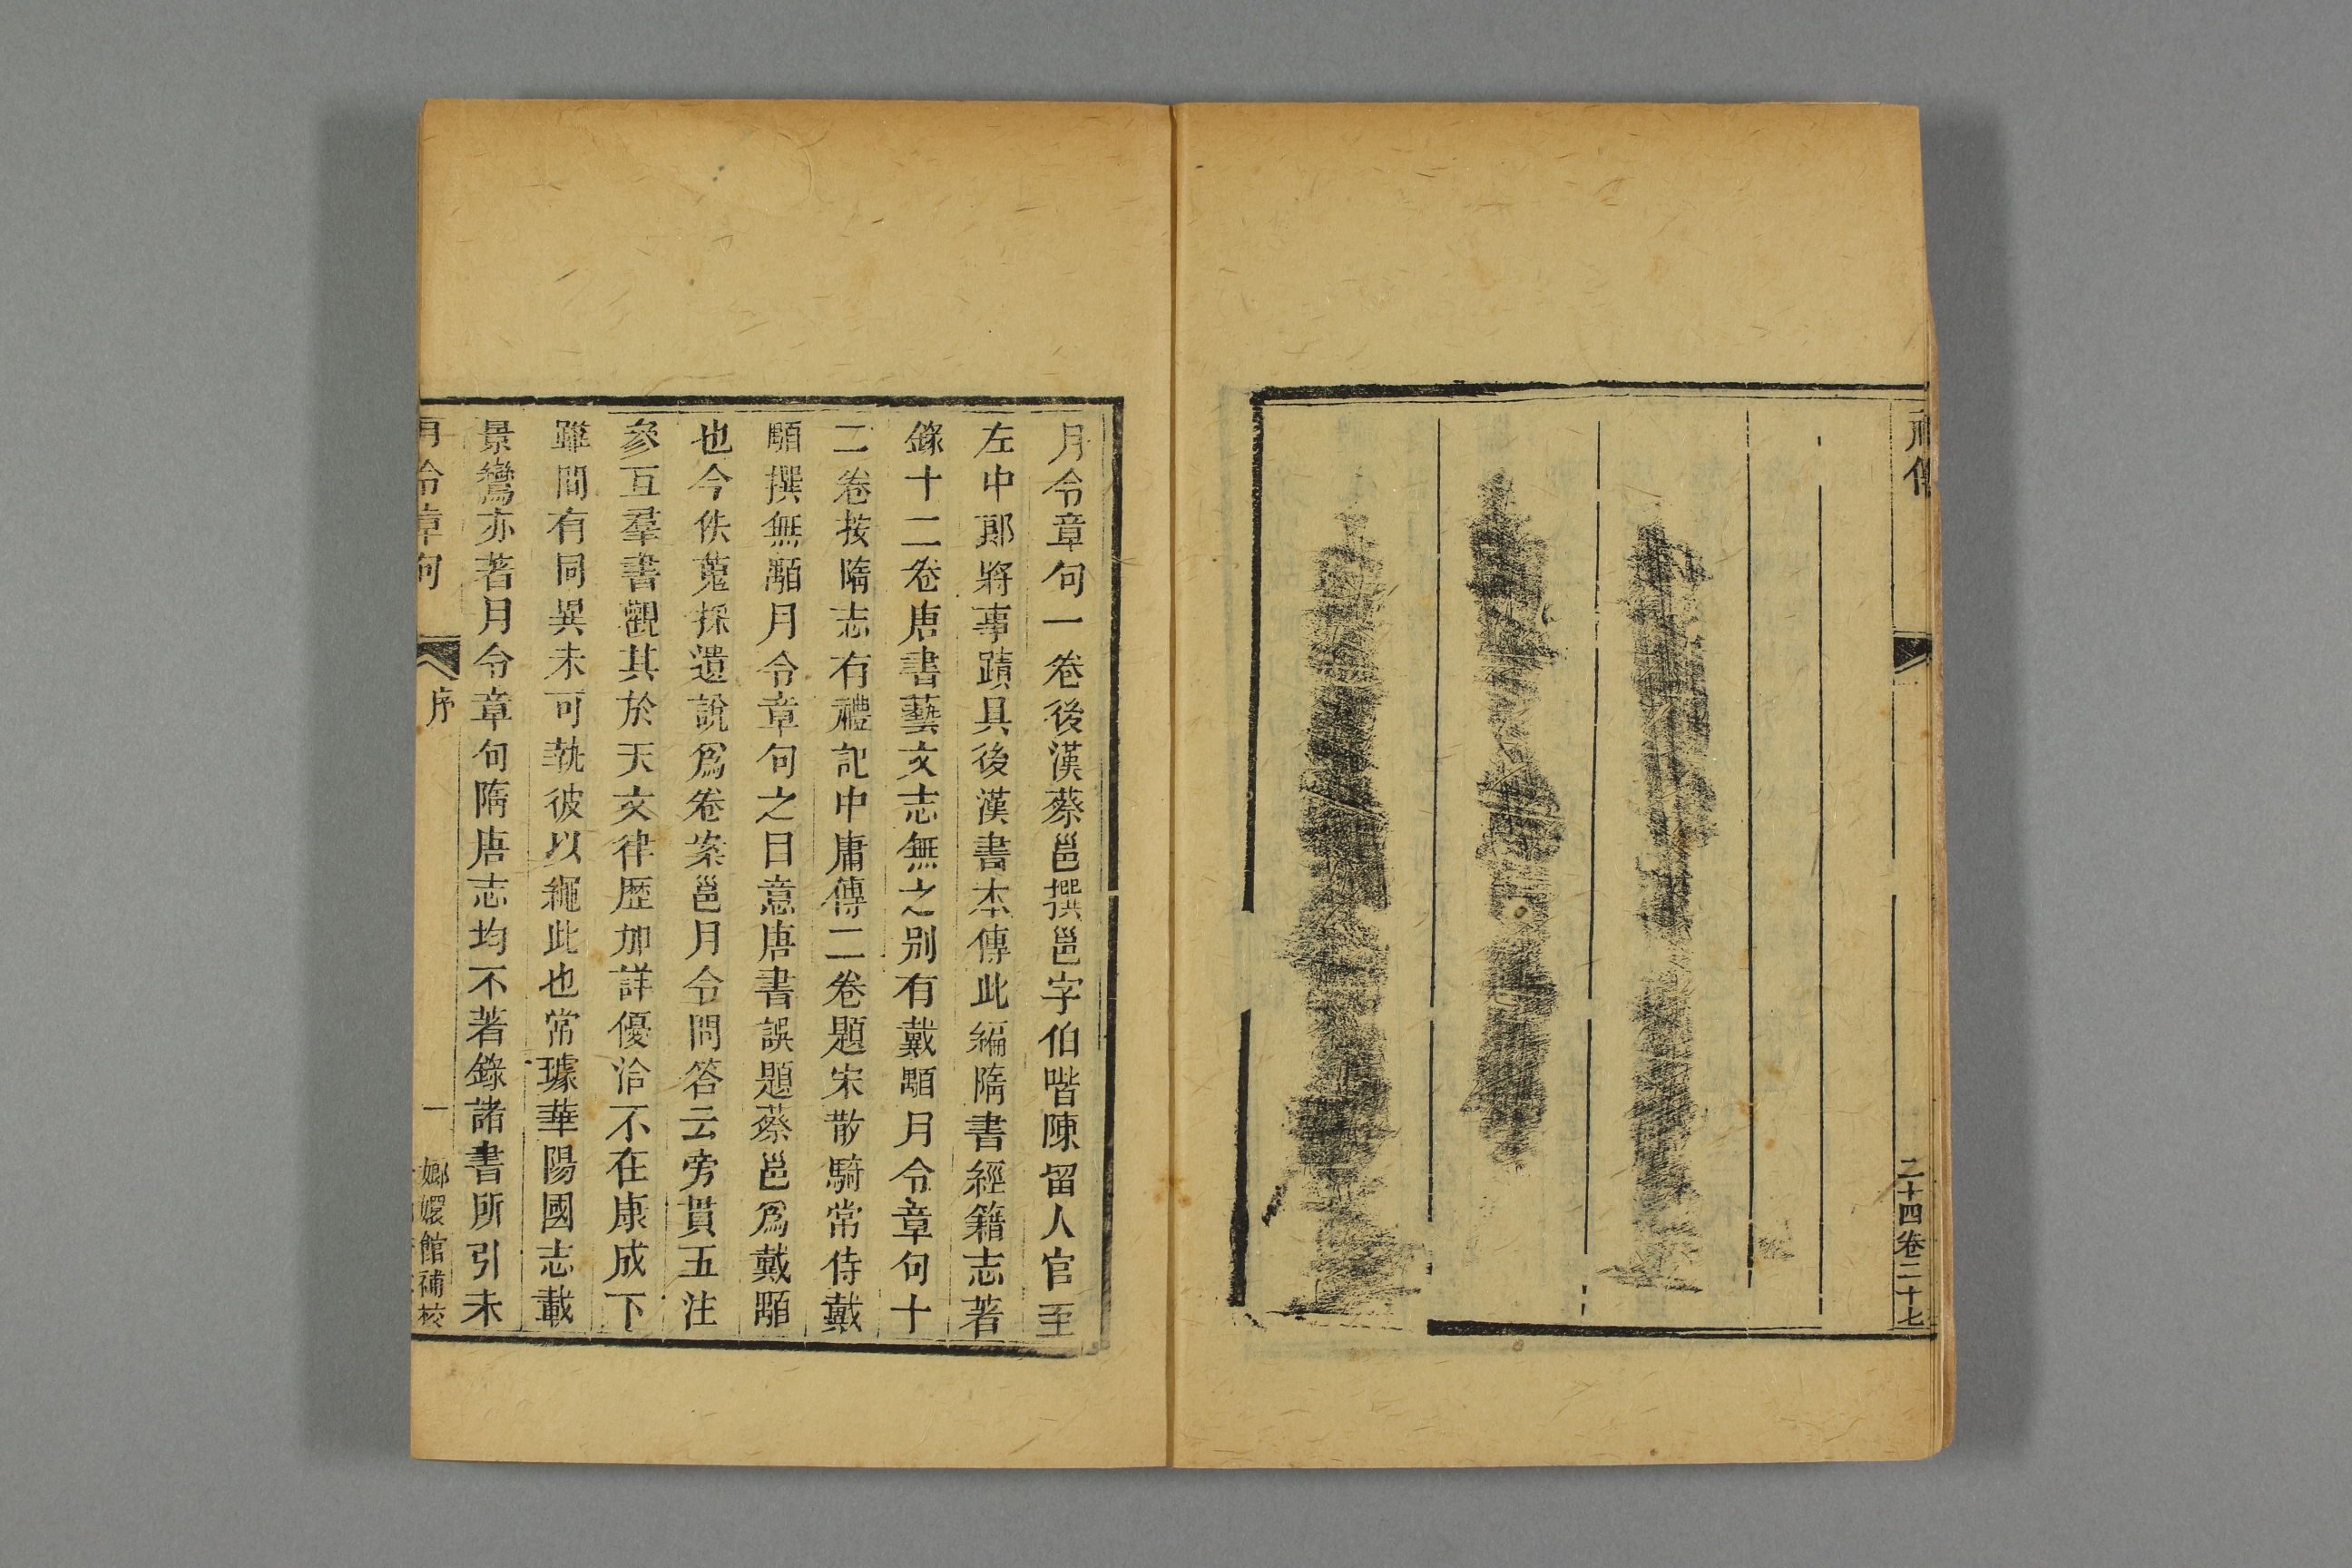 二十四卷二十七
月令章句一卷後漢蔡邕撰邕字伯喈陳留人官至
左中郎將事蹟具後漢書本傳此編隋書經籍志著
錄十二卷唐書藝文志無之別有戴顒月令章句十
二卷按隋志有禮記中庸傳二卷題宋散騎常侍戴
顒撰無顒月令章句之目意唐書誤題蔡邕爲戴顒
也今佚蒐採遺說爲卷案邕月令問答云旁貫五注
參互羣書觀其於天文律歷加詳優洽不在康成下
雖間有同異未可執彼以繩此也常璩華陽國志載
景鸞亦著月令章句隋唐志均不著錄諸書所引未
月令章句
序
一
嫏嬛館補校